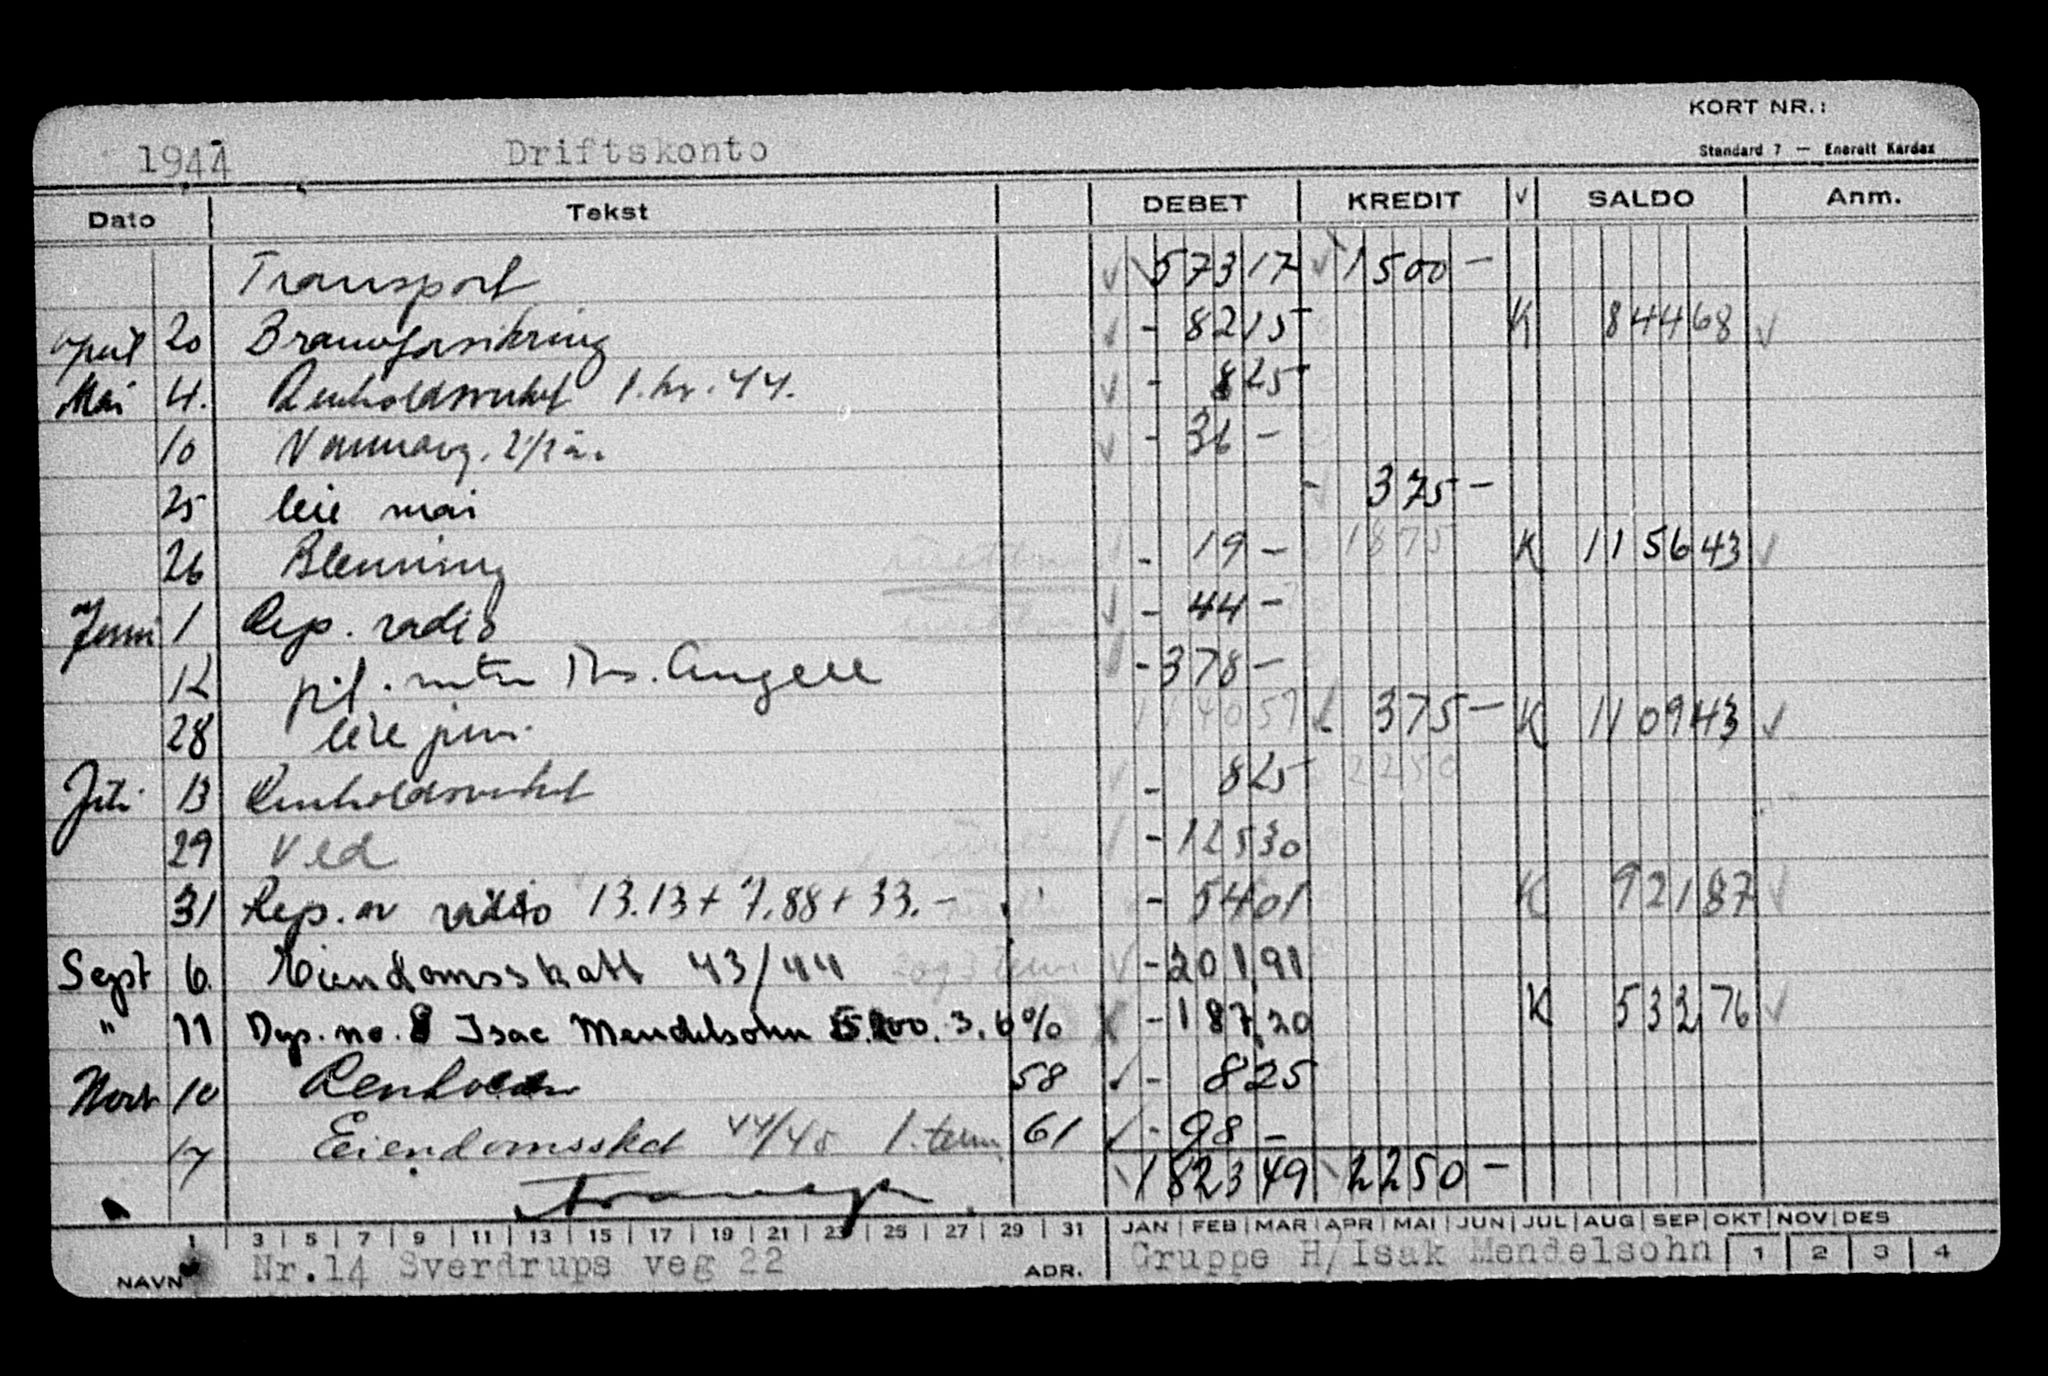 KORT NR.:
1944 Driftskonto Standard 7 — Enerett Kardex
Dato Tekst DEBET KREDIT √ SALDO Anm.
Transport 573 17 1 500 —
April 20 Brannforsikring - 82 15 K 844 68
Mai 4. Renholdsverket 1. kv. 44. - 8 25
10 Vannavg. 1/2 år. - 36 -
25 leie mai 375 —
26 - 19 - 1875 K 1156 43
Juni 1 Rep. radio - 44 -
12 Ths. Angell - 378 -
28 leie juni 1140 57 375 — K 1109 43
Juli 13 Renholdsverket - 8 25 2250
29 Ved - 125 30
31 Rep. av radio 13.13 + 7.88 + 33.- - 54 01 K 921 87
Sept 6. Eiendomsskatt 43/44 2 og 3 term - 201,91
" 11 Dep. no. 8 Isac Mendelsohn 5.200. 3.6% - 187,20 K 532 76
10 Renhold 58 - 8 25
17 Eiendomsskat 44/45 1. term 61 - 98 -
Transp. 1823 49 2250 —
1 3 5 7 9 11 13 15 17 19 21 23 25 27 29 31 JAN FEB MAR APR MAI JUN JUL AUG SEP OKT NOV DES
NAVN Nr.14 Sverdrups veg 22 ADR. Gruppe H/Isak Mendelsohn 1 2 3 4